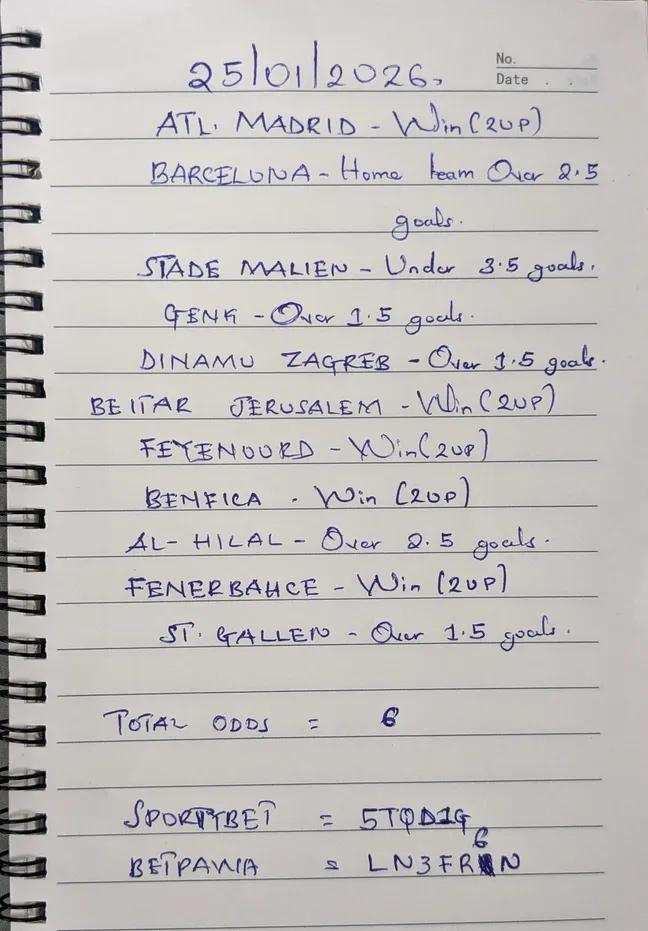 No.
Date . .
25/01/2026.
ATL. MADRID - Win (2UP)
BARCELONA - Home team Over 2.5
goals.
STADE MALIEN - Under 3.5 goals.
GENK - Over 1.5 goals.
DINAMO ZAGREB - Over 1.5 goals.
BEITAR JERUSALEM - Win (2UP)
FEYENOORD - Win (2UP)
BENFICA - Win (2UP)
AL-HILAL - Over 2.5 goals.
FENERBAHCE - Win (2UP)
ST. GALLEN - Over 1.5 goals.
TOTAL ODDS = 6
SPORTYBET = 5TQD1G
BETPAWA = LN3FR6N